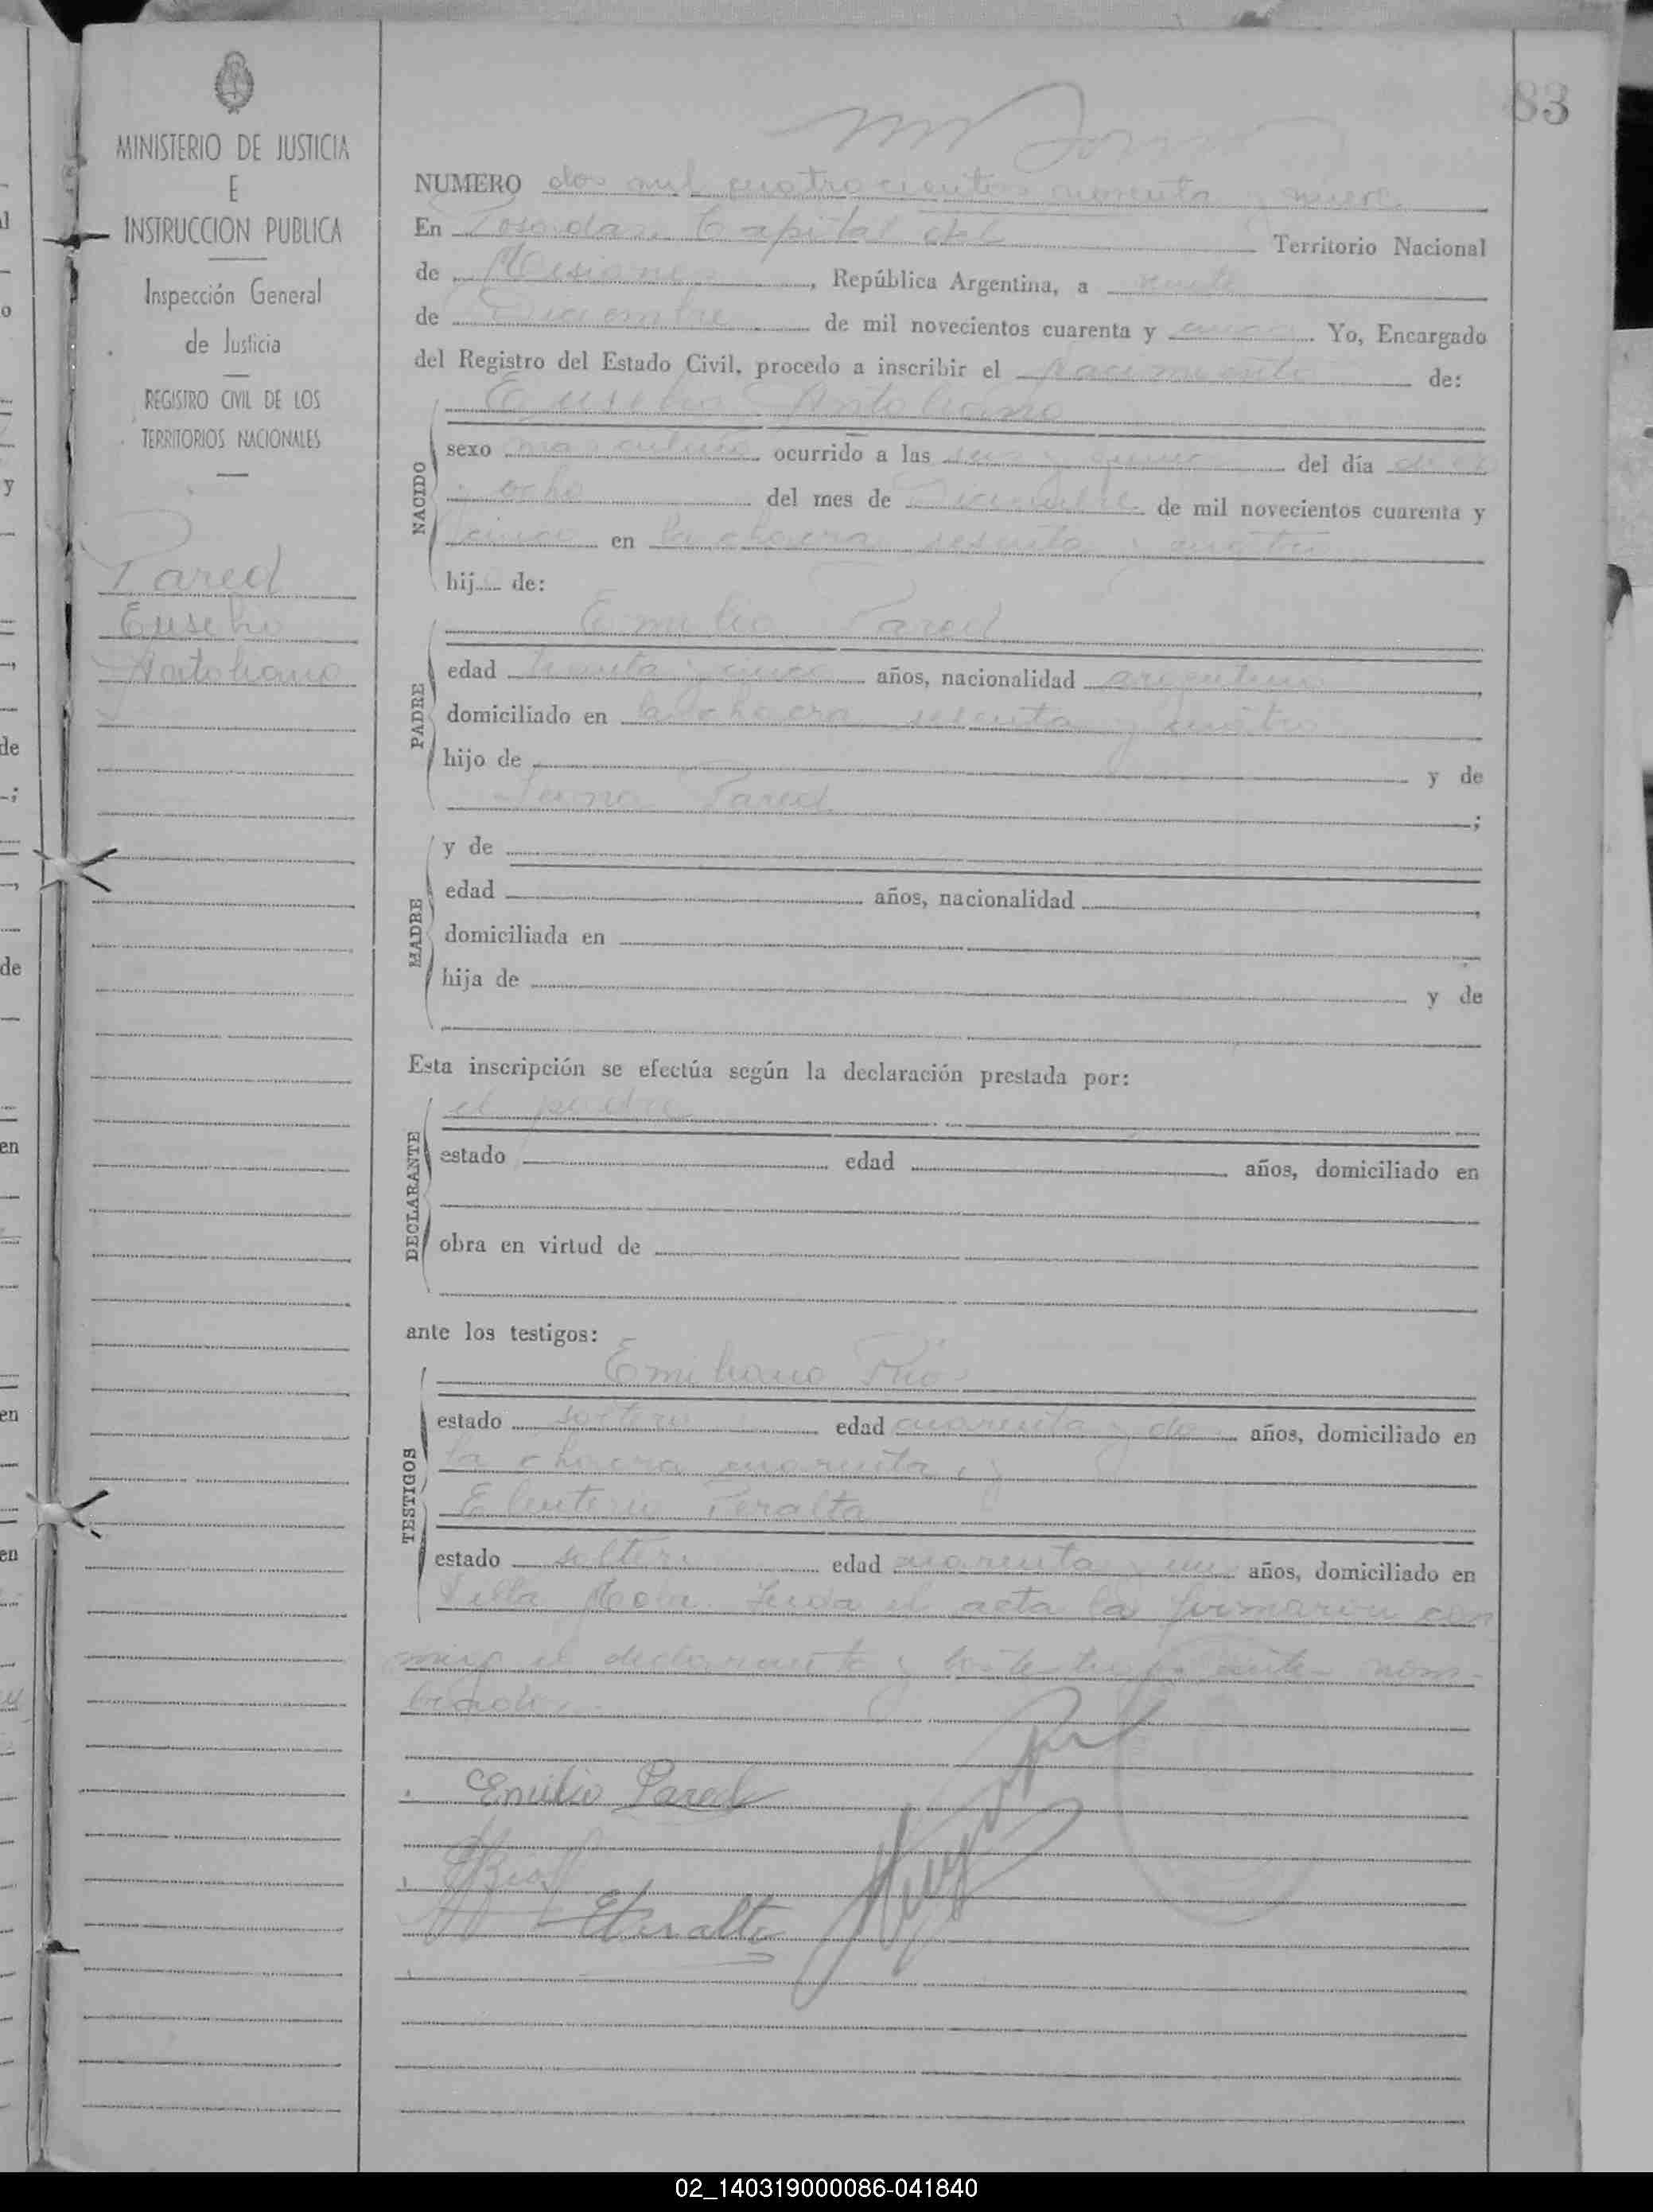 83
MINISTERIO DE JUSTICIA
E
INSTRUCCION PUBLICA
Inspección General
de Justicia
REGISTRO CIVIL DE LOS
TERRITORIOS NACIONALES
Pared
Eusebio
NUMERO dos mil cuatrocientos cuarenta y nueve
En Posadas, Capital del Territorio Nacional
de Misiones, República Argentina, a veinte
de Diciembre de mil novecientos cuarenta y Yo, Encargado
del Registro del Estado Civil, procedo a inscribir el Nacimiento de:
Eusebio
NACIDO
sexo masculino ocurrido a las seis y quince del día diez
y ocho del mes de Diciembre de mil novecientos cuarenta y
cinco en la chacra sesenta y cuatro
hij de:
PADRE
Emilio Pared
edad treinta y cinco años, nacionalidad argentino,
domiciliado en la chacra sesenta y cuatro
hijo de y de
Pared;
MADRE
y de
edad años, nacionalidad,
domiciliada en
hija de y de
Esta inscripción se efectúa según la declaración prestada por:
DECLARANTE
el padre
estado edad años, domiciliado en
obra en virtud de
ante los testigos:
TESTIGOS
Emiliano Rios
estado soltero edad cuarenta y dos años, domiciliado en
la chacra cuarenta, y
Eleuterio Peralta
estado soltero edad cuarenta y un años, domiciliado en
Villa Leida el acta la firmaron con
migo el declarante y los testigos ante nom-
brados
Emilio Pared
ERios
EPeralta
02_140319000086-041840